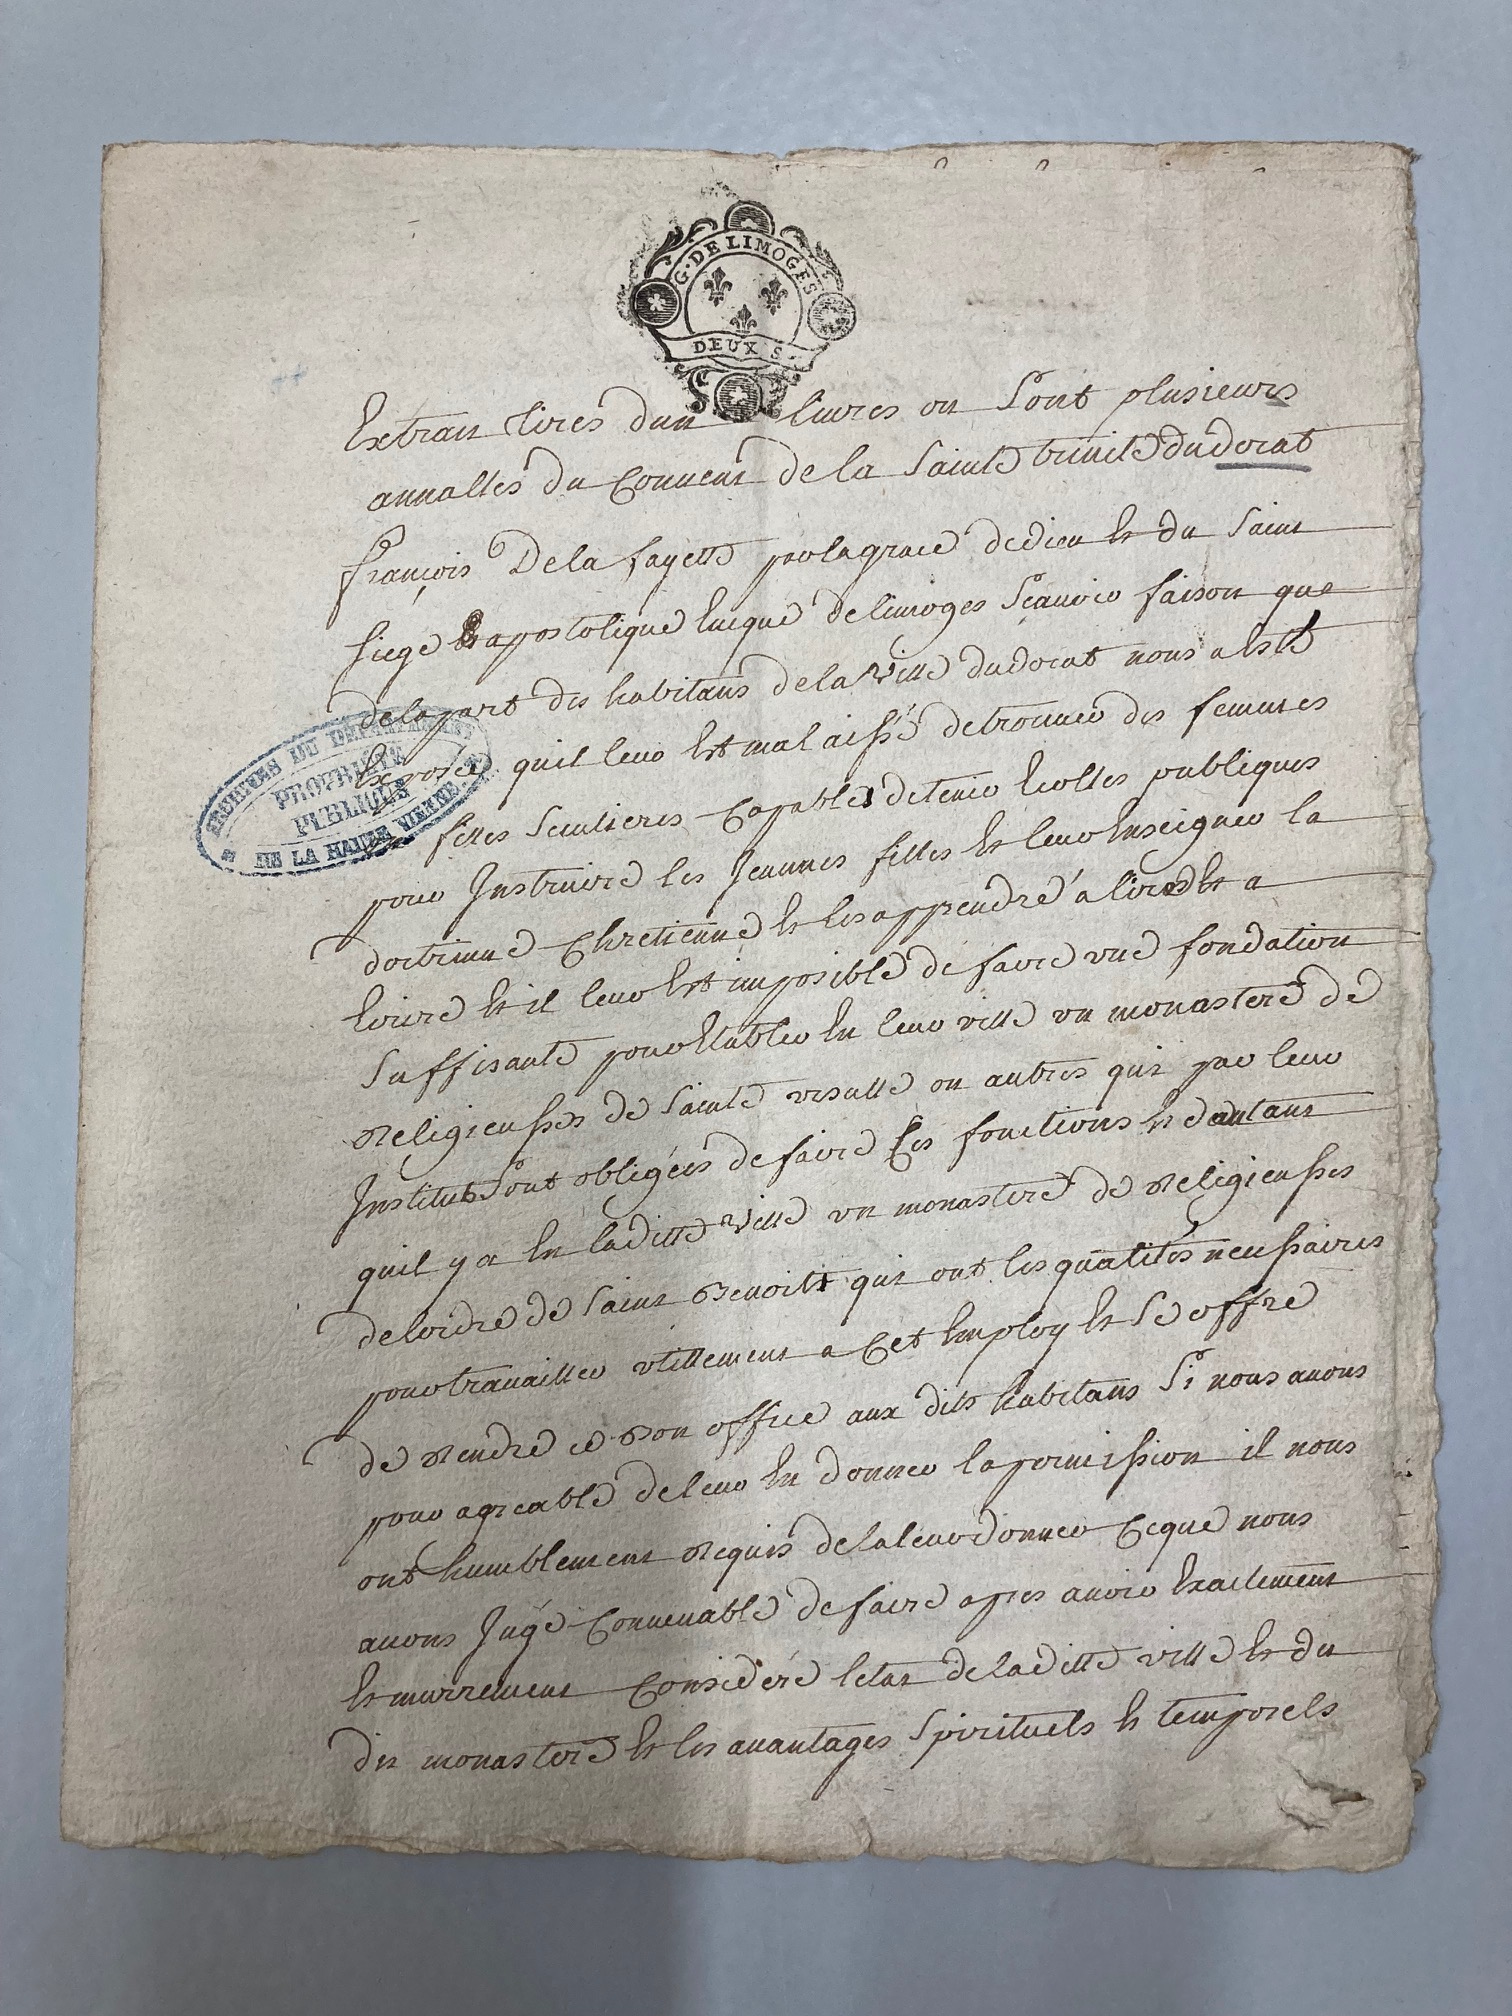 G. DE LIMOGES
DEUX S.
Extrait tires dun livres ou sont plusieurs
annalles du Convent de la Sainte trinité du dorat
françois De la fayette par la grace de dieu et du Saint
siege apostolique Eveque de limoges Sçavoir faison que
de la part des habitans de la Ville du dorat nous a esté
Exposée quil leur Est mal aissé de trouver des femmes
ou filles Seculieres Capables de tenir Ecolles publiques
pour Instruire les Jeunnes filles et leur Enseigner la
doctrinne Chretienne et les apprendre a lire et a
Ecrire et il leur Est imposible de faire une fondation
Suffisante pour Etablir En leur ville un monastere de
Religieusses de Sainte ursulle ou autres qui par leur
Institut Sont obligées de faire Ces fonctions et dautant
quil y a En la ditte Ville un monastere de Religieusses
de lordre de Saint Benoist qui ont les qualités necessaires
pour travailler utillement a Cet Employ et Se offre
de Rendre ce Bon office aux dits habitans Si nous avons
pour agreable de leur En donner la permission il nous
ont humblement Requis de la leur donner Ce que nous
avons Jugé Convenable de faire apres avoir Exactement
Et murrement Consideré letat de la ditte ville et du
dit monastere et les avantages Spirituels et temporels
ARCHIVES DU DEPARTEMENT
PROPRIÉTÉ
PUBLIQUE
DE LA HAUTE VIENNE